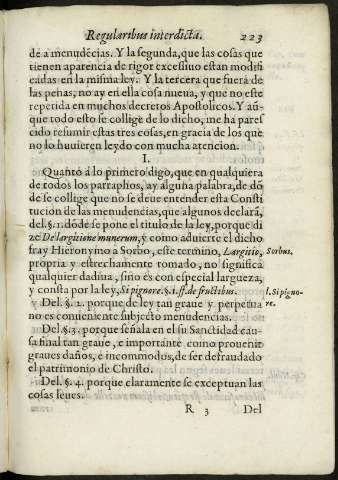 Regularibus interdicta. 223
de a menudẽcias. Y la segunda, que las cosas que
tienen aparencia de rigor excessiuo estan modifi
cadas en la misma ley. Y la tercera que fuera de
las penas, no ay en ella cosa nueua, y que no este
repetida en muchos decretos Apostolicos. Y aũ-
que todo esto se collige de lo dicho, me ha pares
cido resumir estas tres cosas, en gracia de los que
no lo huuieren leydo con mucha atencion.
I.
Quanto á lo primero digo, que en qualquiera
de todos los parraphos, ay alguna palabra, de dõ
de se collige que no se deue entender esta Consti
tucion de las menudencias, que algunos declarã,
del §.1. dõde se pone el titulo de la ley, porque di
ze De largitione munerum, y como aduierte el dicho
fray Hieronymo a Sorbo, este termino, Largitio, Sorbus.
propria y estrechamente tomado, no significa
qualquier dadiua, sino es con especial largueza,
y consta por la ley, Si pignore. §. 1. ff. de fructibus. l. Si pigno-
Del. §. 2. porque de ley tan graue y perpetua re.
no es conueniente subjecto menudencias.
Del. §. 3. porque señala en el su Sanctidad cau-
sa final tan graue, e importante como prouenir
graues daños, e incommodos, de ser defraudado
el patrimonio de Christo.
Del. §. 4. porque claramente se exceptuan las
cosas leues.
R 3 Del